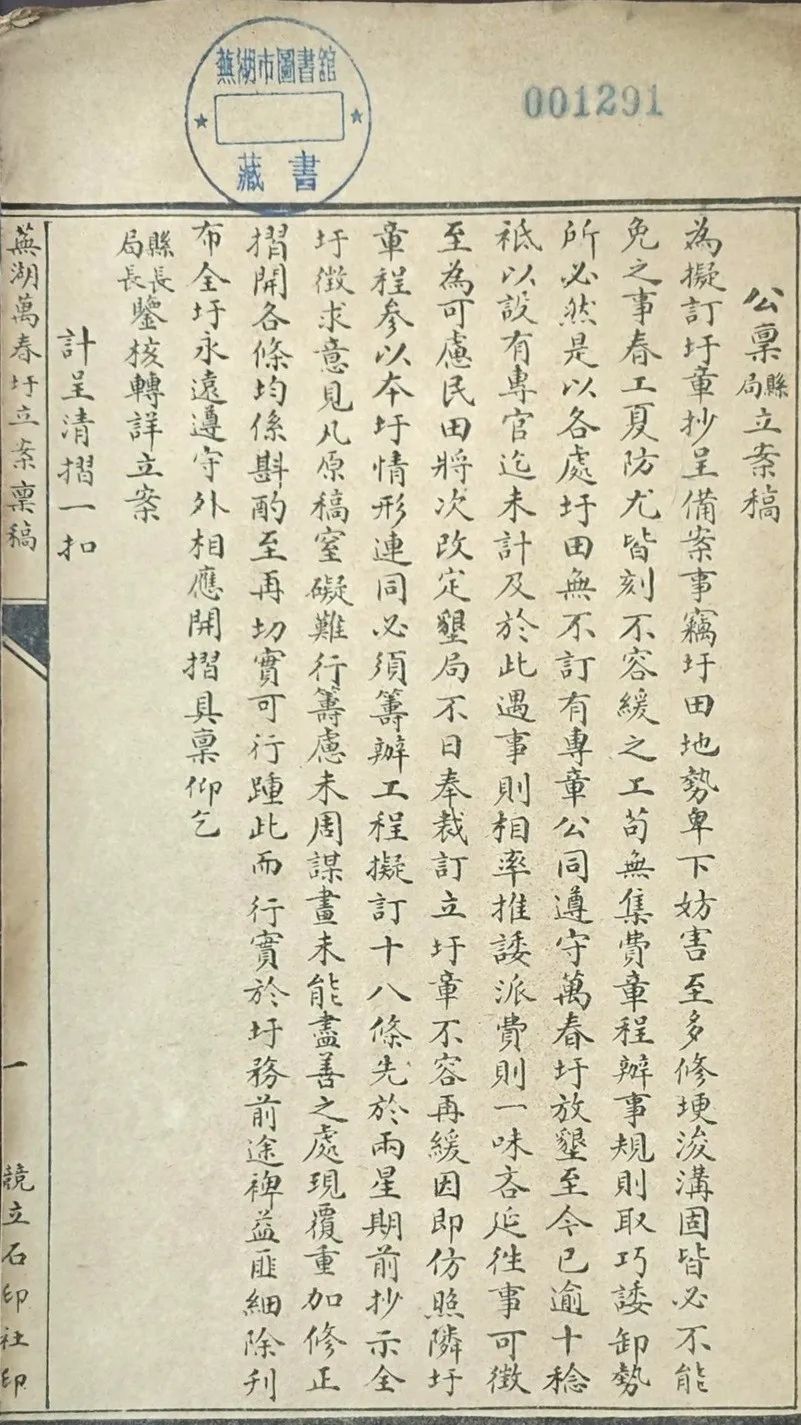 蕪湖市圖書館
藏書
001291
公稟縣局立案稿
為擬訂圩章抄呈備案事竊圩田地勢卑下妨害至多修埂浚溝固皆必不能
免之事春工夏防尤皆刻不容緩之工苟無集費章程辦事規則取巧諉卸勢
所必然是以各處圩田無不訂有專章公同遵守萬春圩放墾至今已逾十稔
祇以設有專官迄未計及於此遇事則相率推諉派費則一味吝延往事可徵
至為可慮民田將次改定墾局不日奉裁訂立圩章不容再緩因即仿照隣圩
章程參以本圩情形連同必須籌辦工程擬訂十八條先於兩星期前抄示全
圩徵求意見凡原稿窒礙難行籌慮未周謀畫未能盡善之處現覆重加修正
摺開各條均係斟酌至再切實可行踵此而行實於圩務前途裨益匪細除刋
布全圩永遠遵守外相應開摺具稟仰乞
縣長局長鑒核轉詳立案
計呈清摺一扣
蕪湖萬春圩立案稟稿
一
競立石印社印